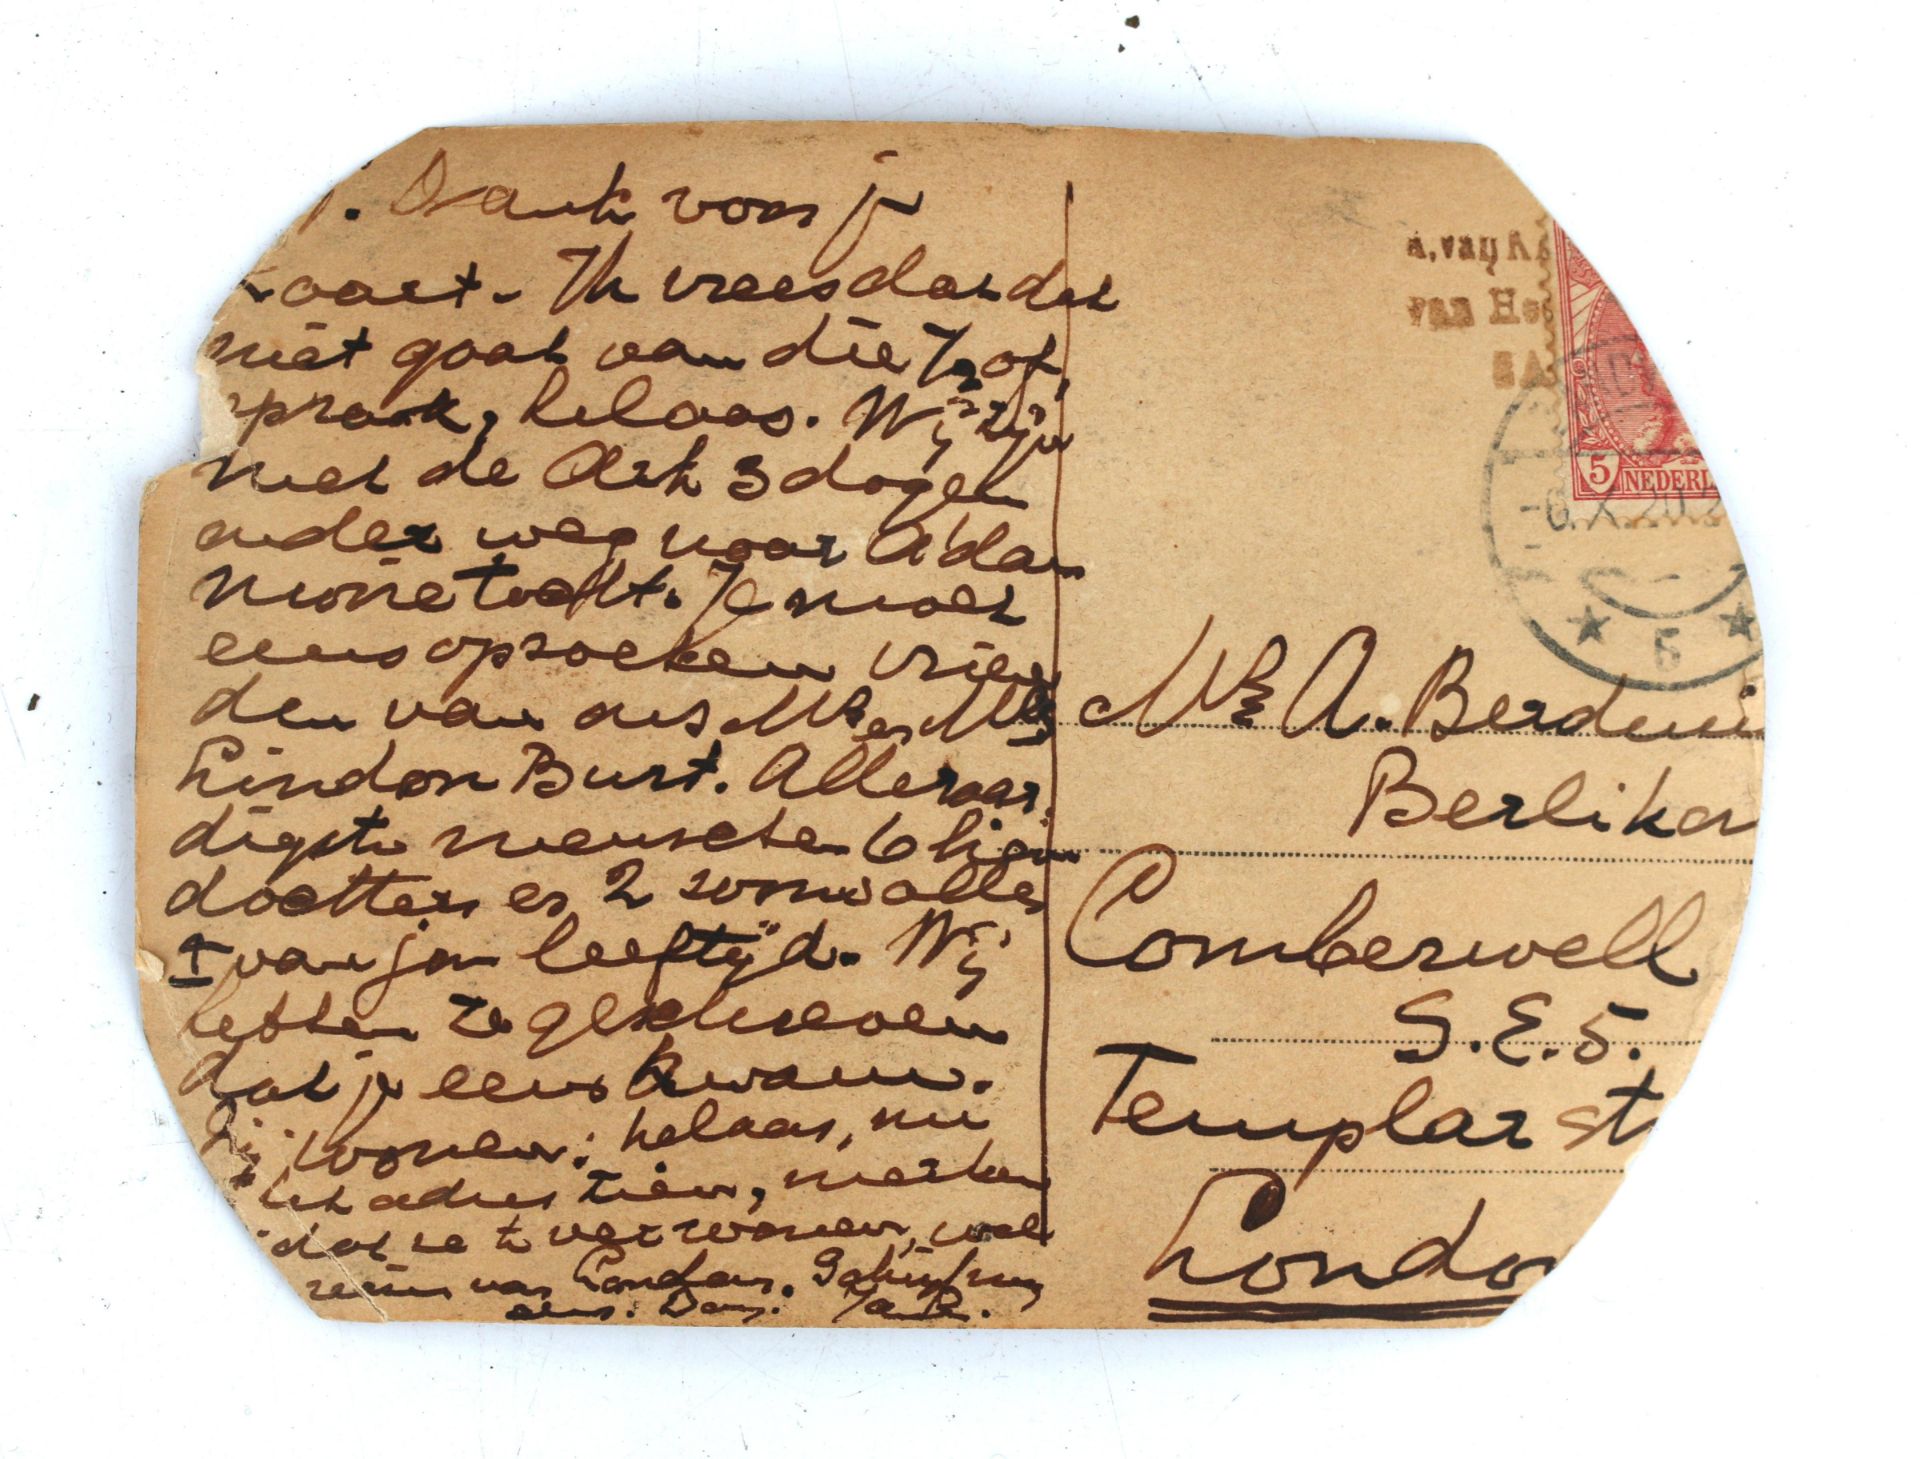 . Dank voor je
kaart. Ik vrees dat dat
niet gaat van die 7 of
spraak, helaas. Wij zijn
met de Ark 3 dagen
onder weg naar A'dam
mooie tocht. Je moet
eens opzoeken vrien
den van ons Mr en Mrs
Lindon Burt. Alleraar
digste menschen 6
dochters en 2 zoons alle
± van jou leeftijd. Wij
hebben ze geschreven
dat je eens kwam.
Zij wonen: helaas, nu
het adres zien, merken
dat ze te ver wonen,
van London. Schrijf nog
eens. Dag.
A. van
van
5 NEDERL
5
Mr A. Berdeni
Berlikon
Comberwell
S.E.5.
Templar st
Londo